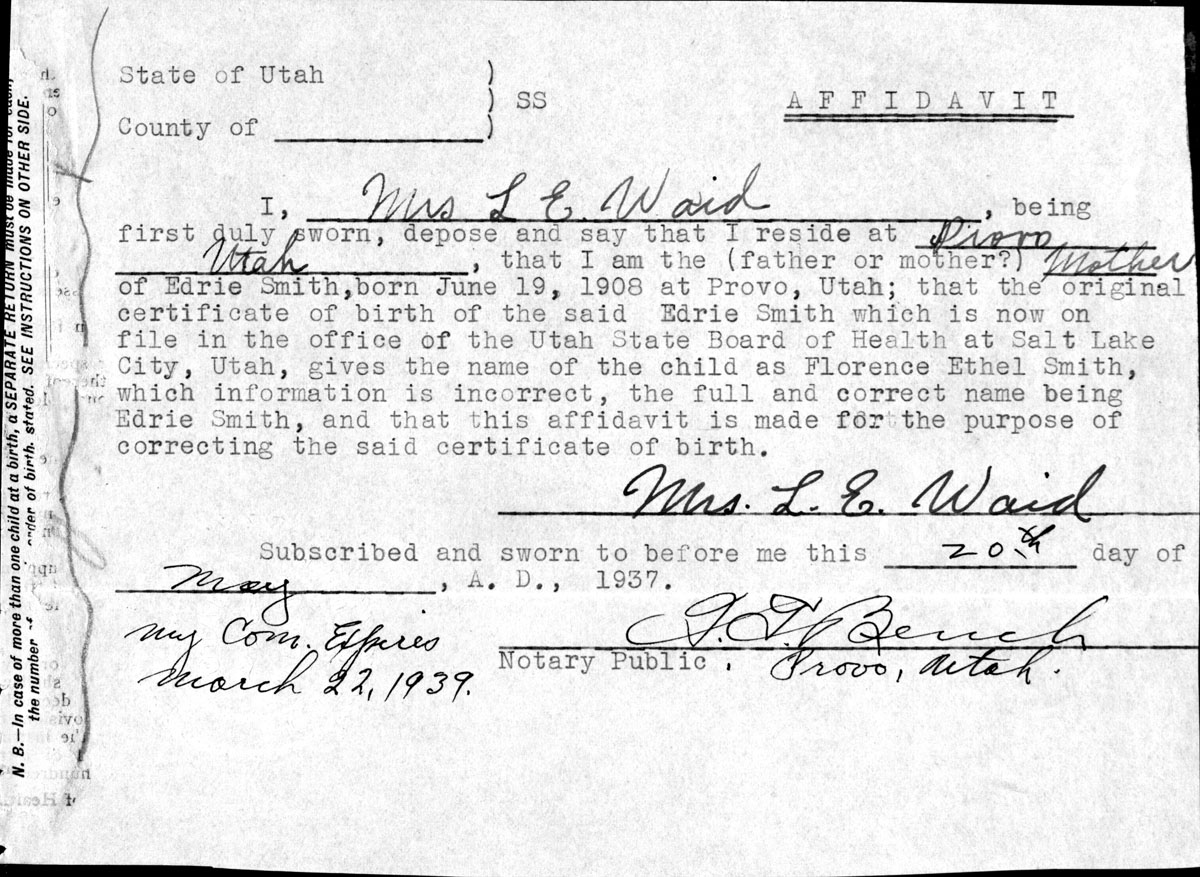 State of Utah )
) SS
County of ____________ )
A F F I D A V I T
I, Mrs L E. Waid, being
first duly sworn, depose and say that I reside at Provo
Utah, that I am the (father or mother?) Mother
of Edrie Smith,born June 19, 1908 at Provo, Utah; that the original
certificate of birth of the said Edrie Smith which is now on
file in the office of the Utah State Board of Health at Salt Lake
City, Utah, gives the name of the child as Florence Ethel Smith,
which information is incorrect, the full and correct name being
Edrie Smith, and that this affidavit is made for the purpose of
correcting the said certificate of birth.
Mrs. L. E. Waid
Subscribed and sworn to before me this 20th day of
May, A. D., 1937.
Bench
My Com. Expires
March 22, 1939.
Notary Public, Provo, Utah.
N. B.—In case of more than one child at a birth, a SEPARATE RETURN must be made for each,
the number order of birth, stated. SEE INSTRUCTIONS ON OTHER SIDE.